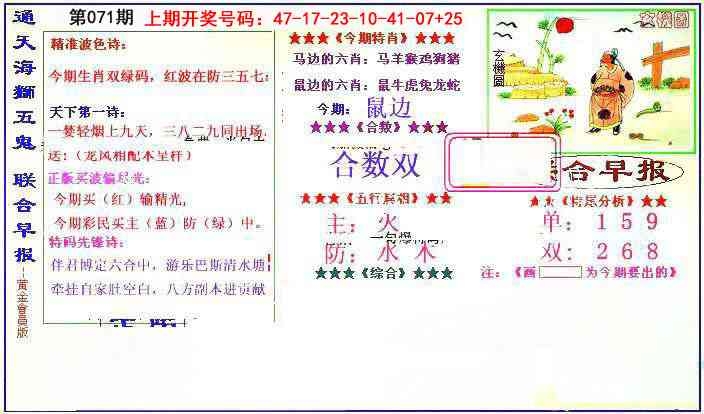 通天海獅五鬼 联合早报--黄金會員版
第071期 上期开奖号码：47-17-23-10-41-07+25
精准波色诗：
今期生肖双绿码，红波在防三五七；
天下第一诗：
一娄轻烟上九天，三八二九同出场.
送：(龙风相配本呈样)
正版买波输尽光：
今期买（红）输精光，
今期彩民买主（蓝）防（绿）中。
特码先锋诗：
伴君博定六合中，游乐巴斯清水塘
牵挂自家肚空白，八方副本进贡献
★★★《今期特肖》★★★
马边的六肖：马羊猴鸡狗猪
鼠边的六肖：鼠牛虎兔龙蛇
今期：鼠边
★★★《合数》★★★
合数双
★★★《五行》★★★
主：火
防：水木
★★★《综合》★★★
玄機圖
玄機圖
合早报
★★《分析》★★
单：1 5 9
双：2 6 8
注：《画 为今期要出的》